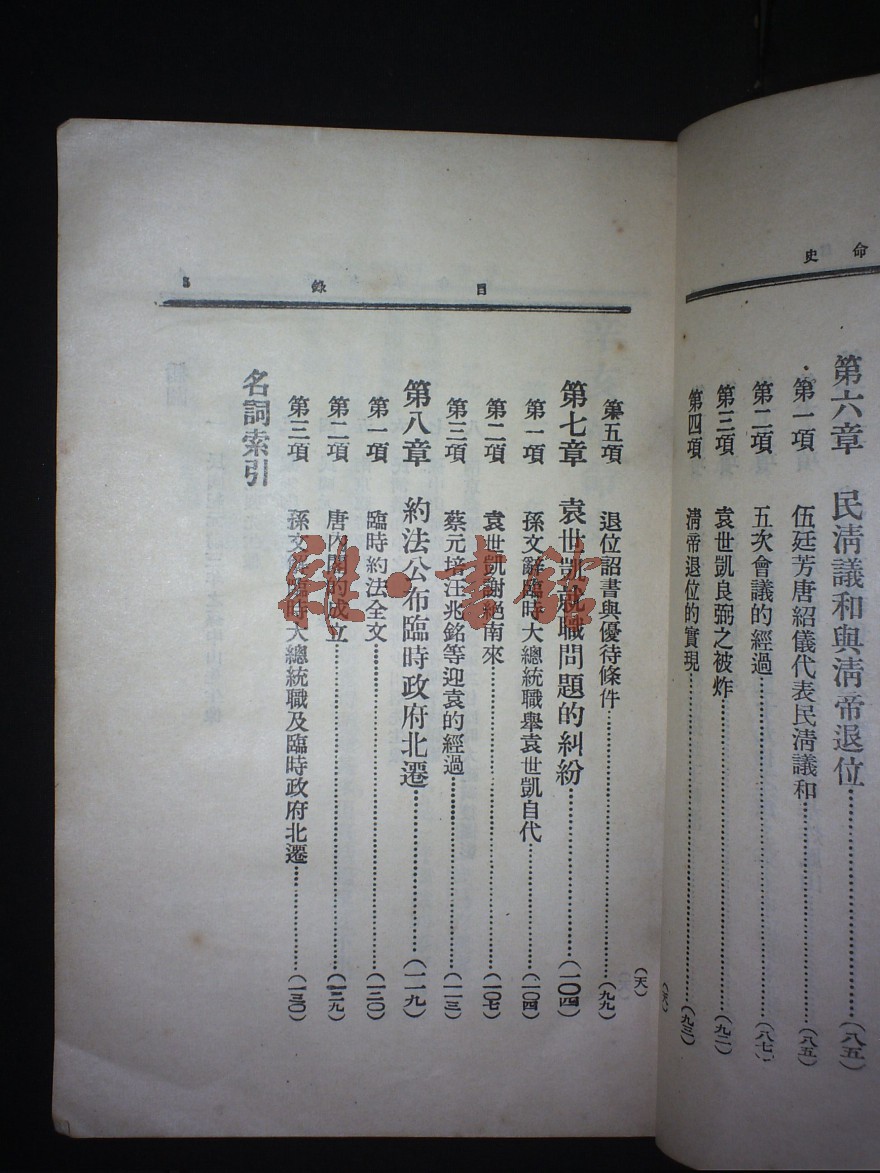 命史
第六章　民淸議和與淸帝退位………（八五）
第一項　伍廷芳唐紹儀代表民淸議和………（八五）
第二項　五次會議的經過………（八七）
第三項　袁世凱良弼之被炸………（九二）
第四項　淸帝退位的實現………（九三）
目錄
第五項　退位詔書與優待條件………（九九）
第七章　袁世凱就職問題的糾紛………（一〇四）
第一項　孫文辭臨時大總統職舉袁世凱自代………（一〇四）
第二項　袁世凱謝絕南來………（一〇七）
第三項　蔡元培汪兆銘等迎袁的經過………（一一三）
第八章　約法公布臨時政府北遷………（一一九）
第一項　臨時約法全文………（一二〇）
第二項　唐內閣的成立………（一二九）
第三項　孫文解臨時大總統職及臨時政府北遷………（一三〇）
名詞索引